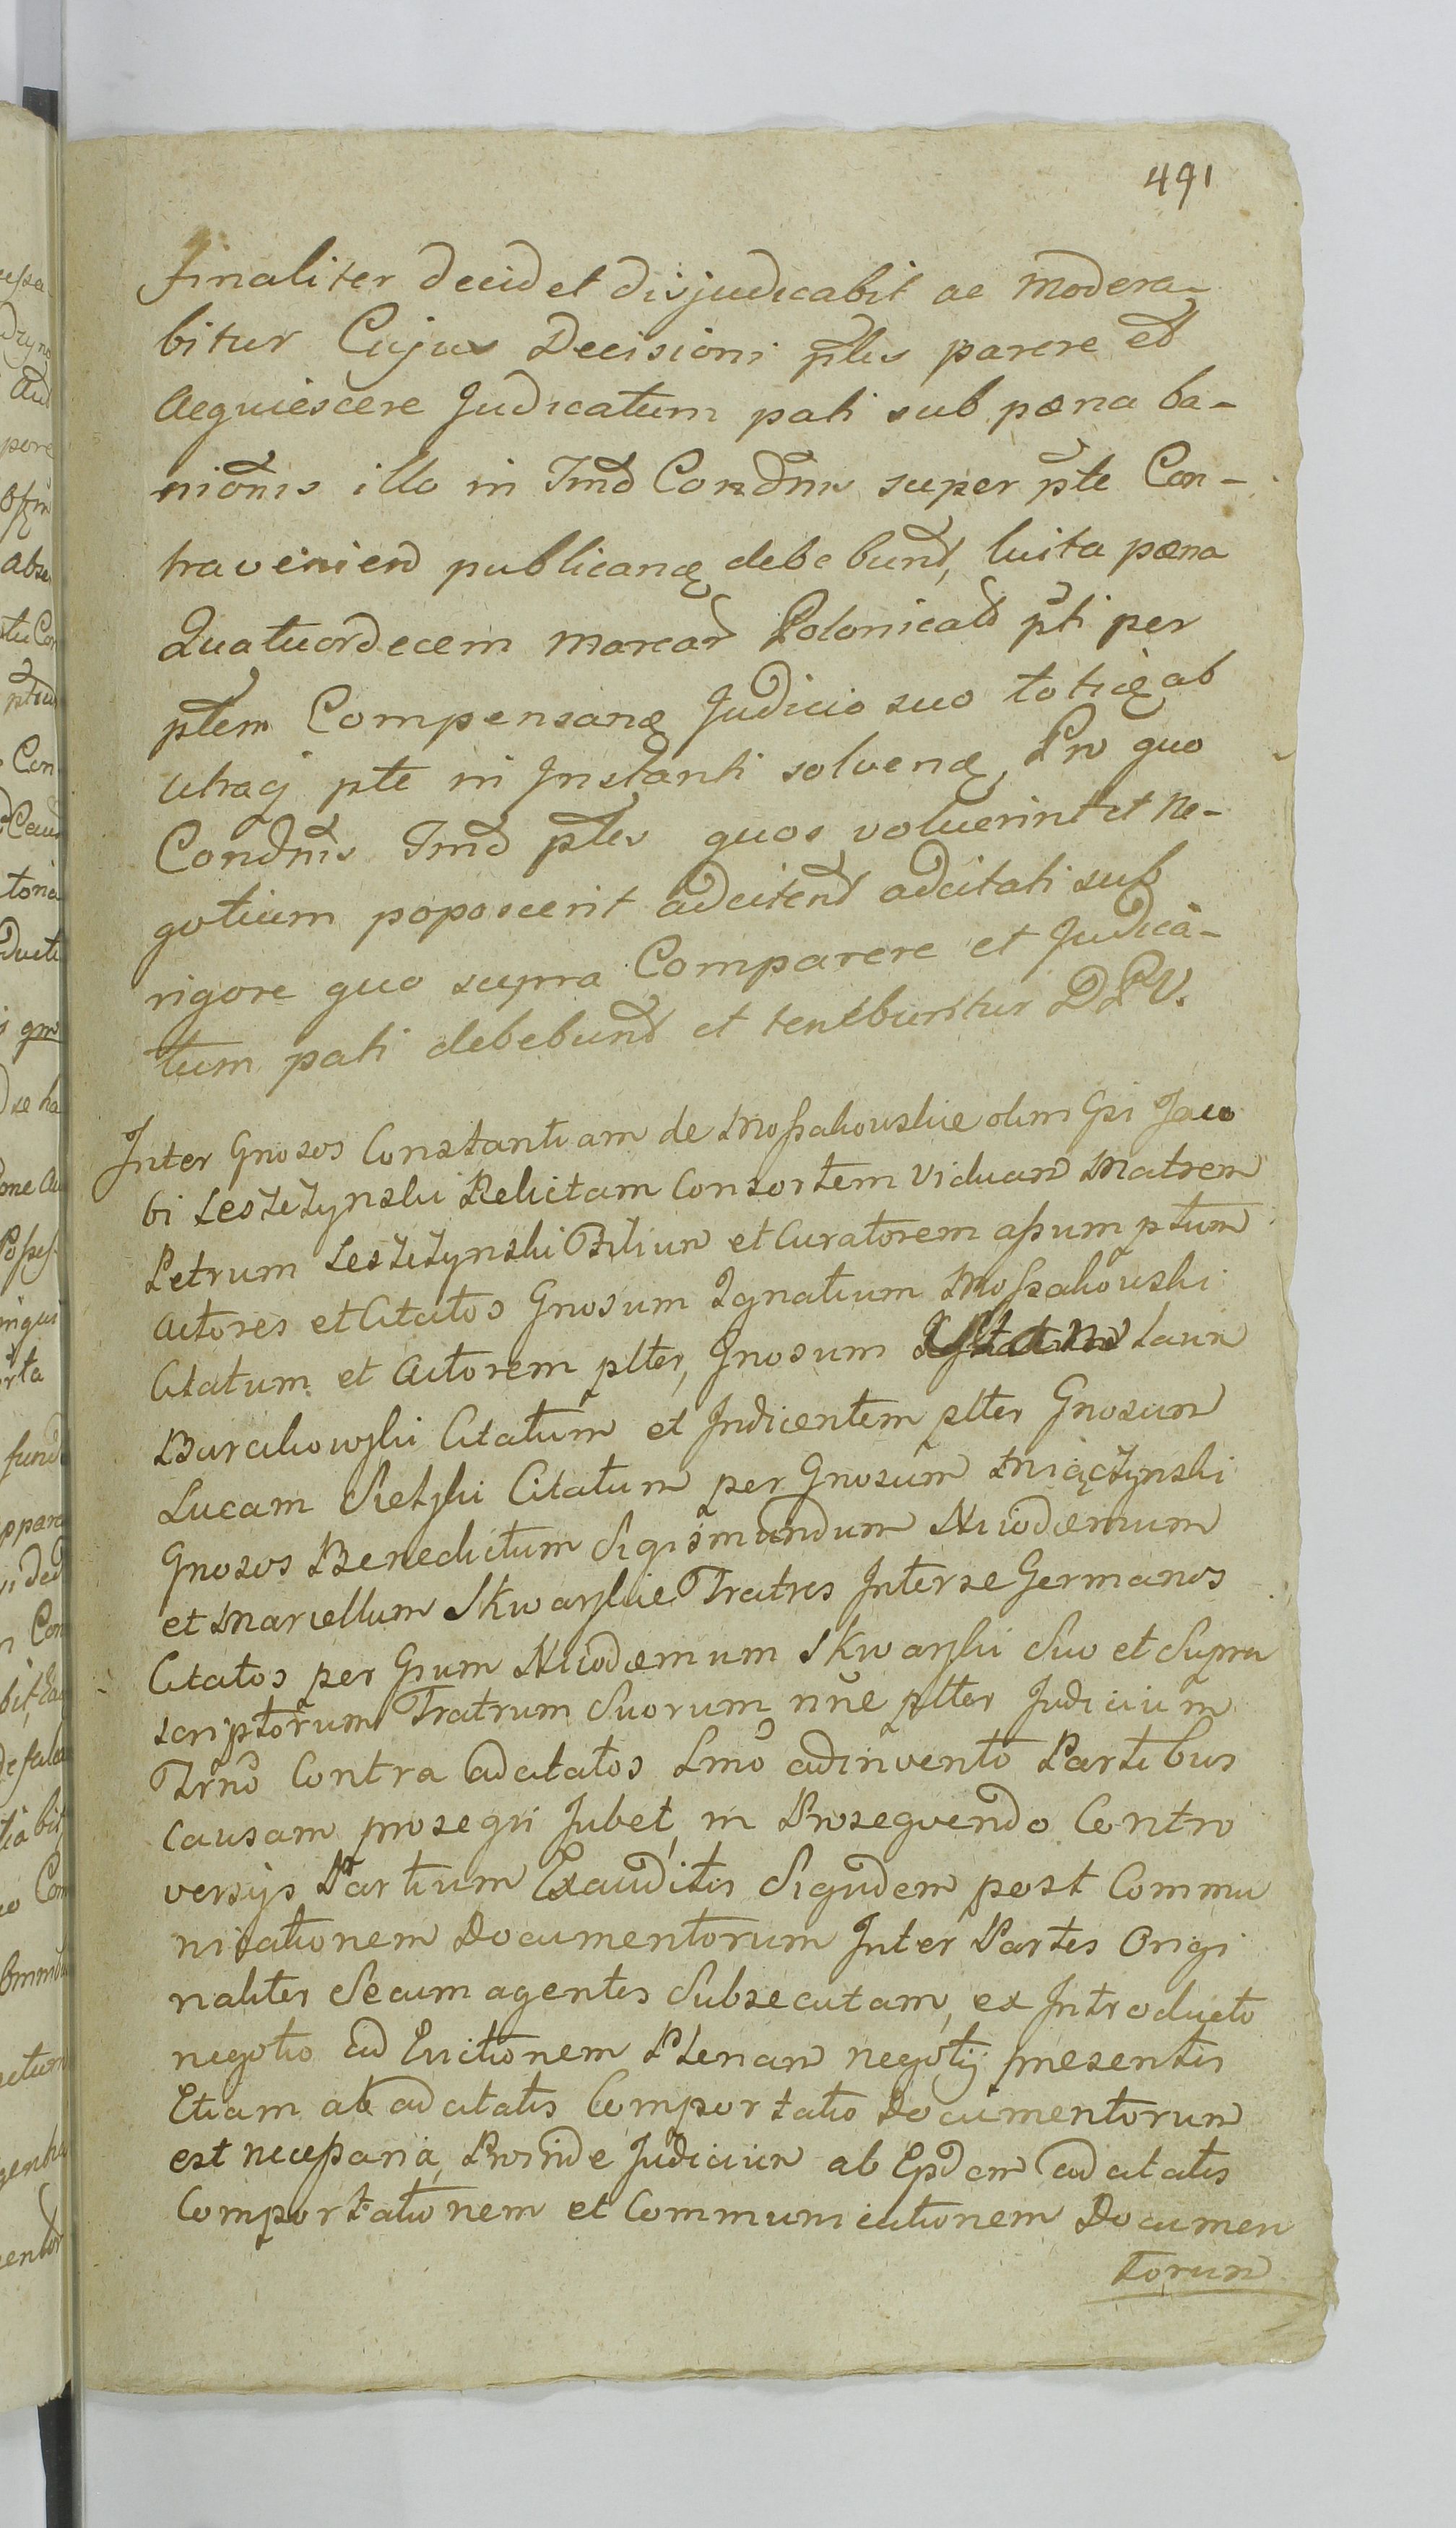 491
finaliter decidet disjudicabit ac modera-
bitur Cujus Decisioni ptes parere et
acquiescere Judicatum pati sub pœna ba-
nionis illo in Tmo Condnis super pte Con-
traveniend publicanæ debebund, luita pœna
Quatuordecem marcar Polonicald pti per
ptem Compensanæ Judicio suo totiæ ab
utraq pte in Instanti solvenæ, Pro quo
Condnis Tmo ptes quos voluerint et ne-
gotium poposcerit adcitend adcitati sub
rigore quo supra Comparere et Judica-
tum pati debebund et tenebuntur DPV.
Inter Gnosos Constantiam de Mossakowskie olim Gsi Jaco
bi Leszczynski Relictam Consortem Viduam Matrem
Petrum Leszczynski Filium et Curatorem assumptum
Actores et Citatos Gnosum Ignatium Mossakowski
Citatum et Actorem plter, Gnosum Laur
Burakowski Citatum et Indicentem plter Gnosum
Lucam Citatum per Gnosum Miączynski
Gnosos Benedictum Sigismundum Nicodemum
et Marcellum Skwarskie Fratres Inter se Germanos
Citatos per Gsum Nicodemum Skwarski Suo et Supra
scriptorum Fratrum Suorum nne plter Judicium
Trno Contra adcitatos Lmo adinvento Partibus
Causam prosequi Jubet, in Prosequendo Contro
versijs Partium Exauditis Siqudem post Commu
nicationem Documentorum Inter Partes Origi
naliter Secum agentes Subsecutam, ex Introducto
negotio ad Evictionem Plenam negotij presentis
Etiam ab adcitatis Comportatio Documentorum
est necessaria, Proinde Judicium ab Epdem adcitatis
Comportationem et Communicationem Documen
torum